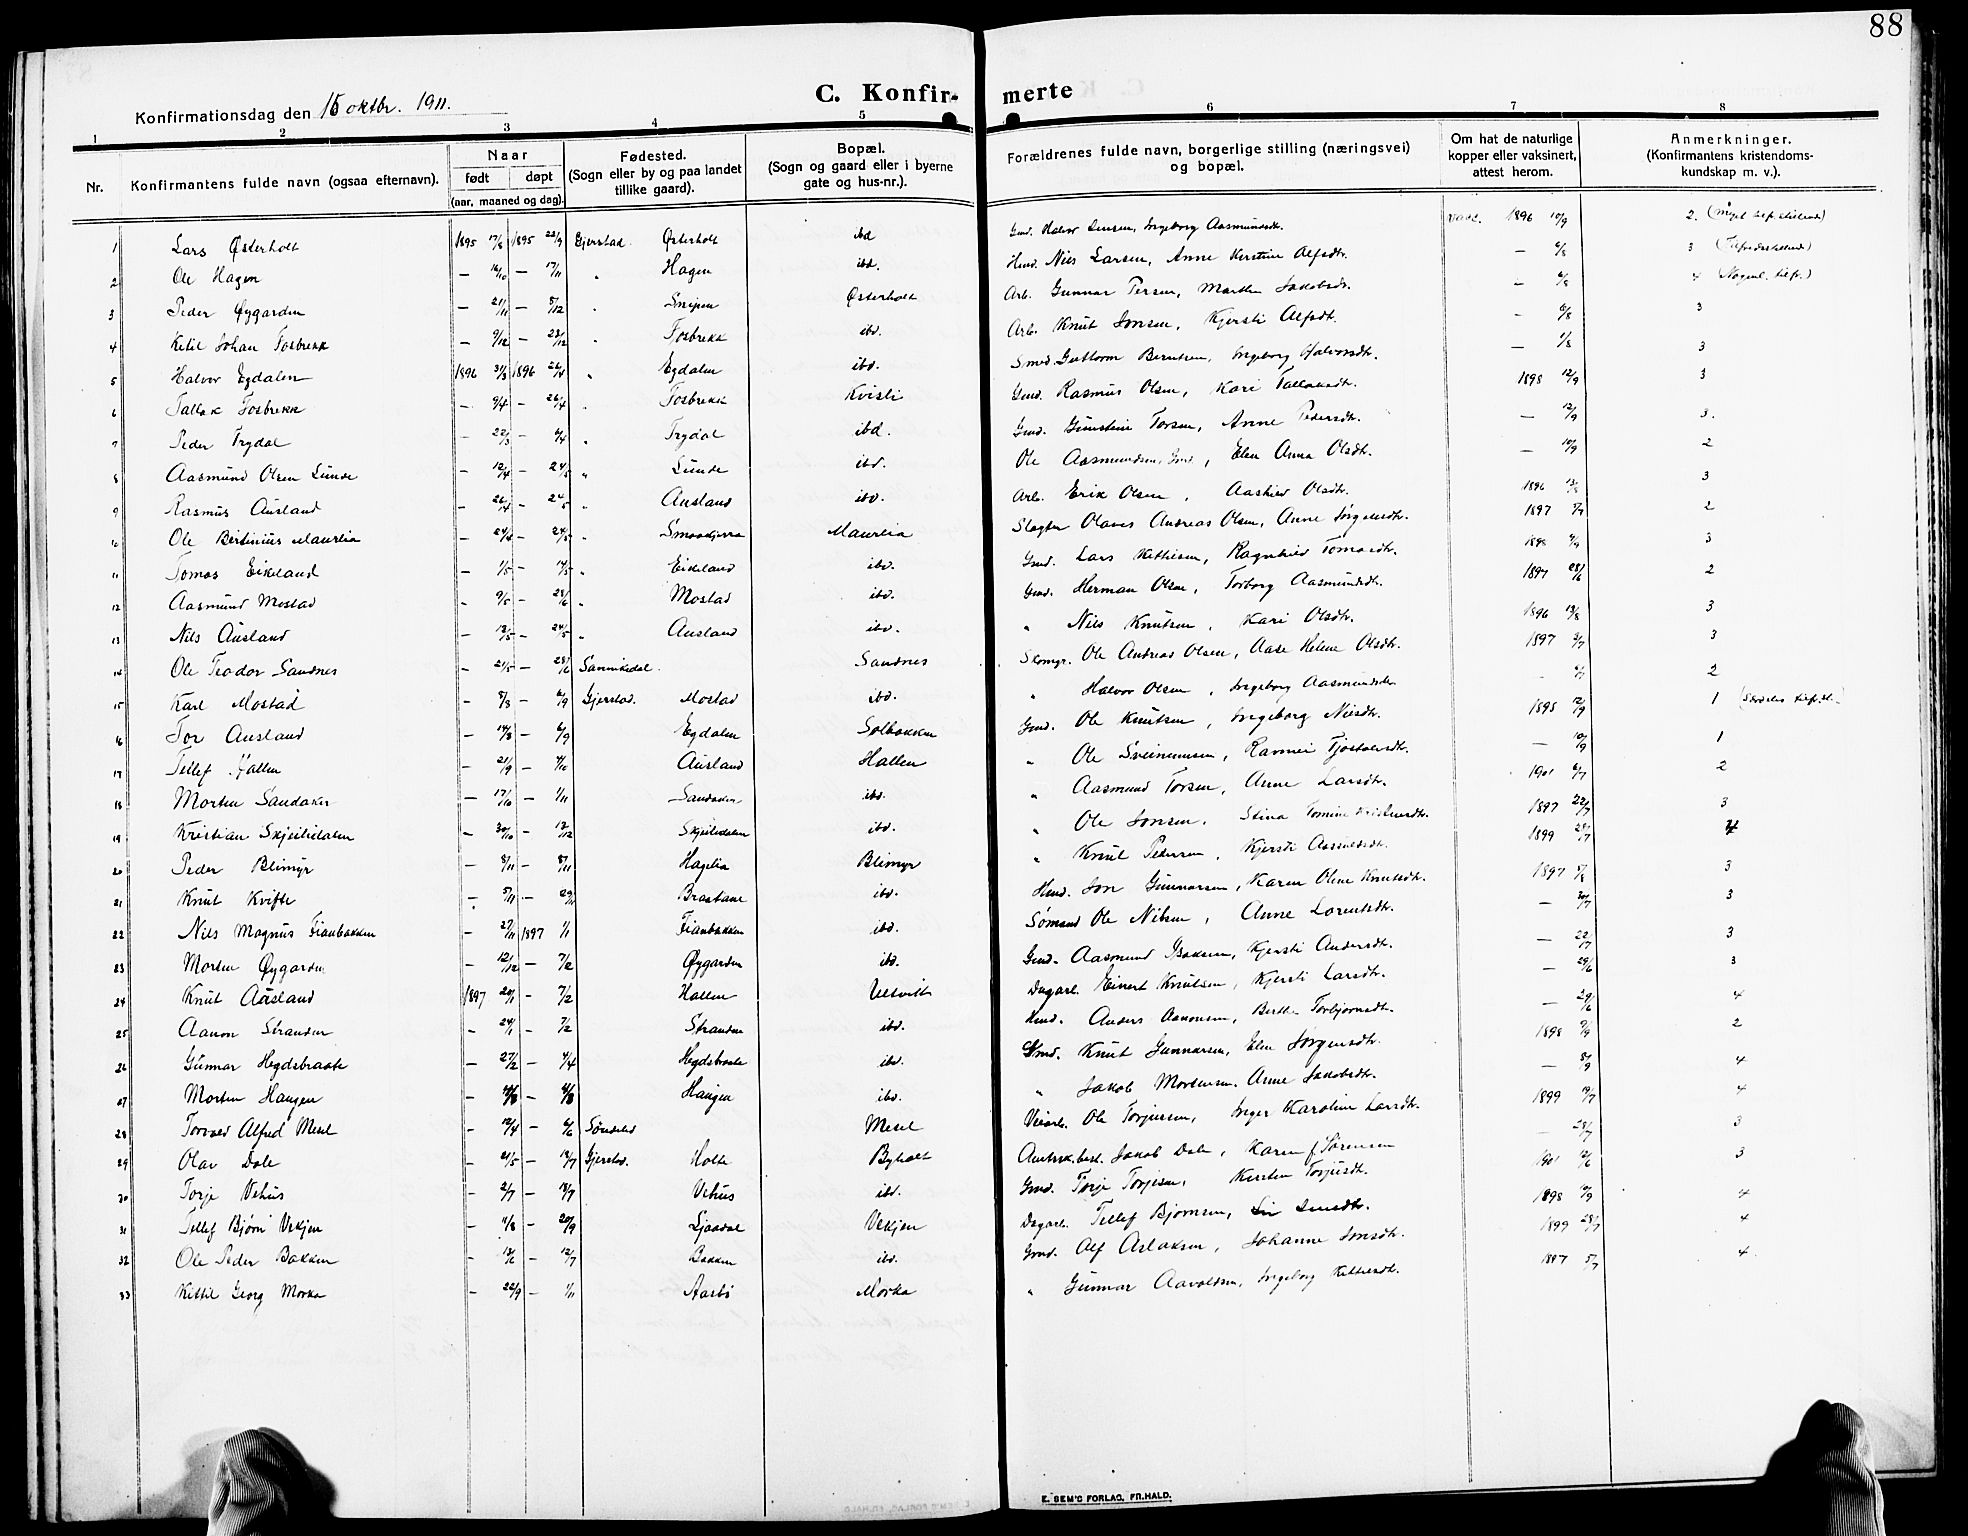 88
Konfirmationsdag den 15 oktbr. 1911.
C. Konfir- merte
1 2 3 4 5 6 7 8
Nr.
Konfirmantens fulde navn (ogsaa efternavn).
Naar
født døpt
(aar, maaned og dag).
Fødested.
(Sogn eller by og paa landet
tillike gaard).
Bopæl.
(Sogn og gaard eller i byerne
gate og hus-nr.).
Forældrenes fulde navn, borgerlige stilling (næringsvei)
og bopæl.
Om hat de naturlige
kopper eller vaksinert,
attest herom.
Anmerkninger.
(Konfirmantens kristendoms-
kundskap m. v.).
1 Lars Østerholt 1895 17/8 1895 22/9 Gjerstad. Østerholt ibd Gmd. Halvor Jensen, Ingeborg Aasmundsdtr. vacc. 1896 10/9 2
2 Ole Hagen — 16/10 — 17/11 " Hagen ibd. Hmd. Nils Larsen, Anne Kerstine Alfsdtr. — 6/8 3
3 Peder Øygarden — 21/11 — 8/12 " Snipen Østerholt Arb. Gunnar Persen, Marthe Jakobsdtr. — 6/8 4
4 Ketil Johan Fosbrekk — 9/12 — 23/12 " Fosbrekk ibd. Arb. Knut Jonsen, Kjersti Alfsdtr. — 6/8 3
5 Halvor Egdalen 1896 31/3 1896 26/4 " Egdalen ibd. Smed. Guttorm Berntsen, Ingeborg Halvorsdtr. — 1/8 3
6 Tallak Fosbrekk — 9/4 — 26/4 " Fosbrekk Kvisli Gmd. Rasmus Olsen, Kari Tallaksdtr. 1898 12/9 3
7 Peder Trydal — 22/3 — 6/4 " Trydal ibd. Gmd. Gunstein Torsen, Anne Pedersdtr. — 12/9 3.
8 Aasmund Olsen Lunde — 12/4 — 24/5 " Lunde ibd. Ole Aasmundsen, Gmd., Elen Anna Olsdtr. — 10/9 2
9 Rasmus Ausland — 26/4 — 24/5 " Ausland ibd. Arb. Erik Olsen, Aashild Olsdtr. 1896 13/8 3
10 Ole Bertinius Maurlia — 24/4 — 24/5 " Smaakjerra Maurlia Slagter Olaves Andreas Olsen, Anne Jørgensdtr. 1897 2
11 Tomas Eikeland — 1/5 — 17/5 " Eikeland ibd. Gmd. Lars Kittilsen, Ragnhild Tomasdtr. 1898 3
12 Aasmund Mostad — 9/5 — 28/6 " Mostad ibd. Gmd. Herman Olsen, Torborg Aasmundsdtr. 1897 28/6 2
13 Nils Ausland — 12/5 — 24/5 " Ausland ibd. " Nils Knutsen, Kari Olsdtr. 1896 13/8 3
14 Ole Teodor Sandnes — 21/5 — 28/6 Sannikedal. Sandnes Skomgr. Ole Andreas Olsen, Aase Helene Olsdtr. 1897 3
15 Karl Mostad — 8/8 — 6/9 Gjerstad. Mostad ibd. " Halvor Olsen, Ingeborg Aasmundsdtr. 2
16 Tor Ausland — 14/8 — 6/9 Egdalen Solbakken Gmd. Ole Knutsen, Ingeborg Nilsdtr. 1898 12/9 1
17 Tellef Hallen — 21/9 — 4/10 Ausland Hallen " Ole Sveinunsen, Ravnei Tjostolsdtr. — 10/9 1
18 Morten Sandaker — 17/10 — 1/11 Sandaker ibd. " Aasmund Torsen, Anne Larsdtr. 1901 6/7 2
19 Kristian Skjeilidalen — 30/10 — 13/12 Skjeilidalen ibd. " Ole Jonsen, Stina Tomine Kristensdtr. 1897 22/7 3
20 Peder Blimyr — 8/11 — 8/11 Hagelia Blimyr " Knut Pedersen, Kjersti 1899 4
21 Knut Kvifte — 5/11 — 29/11 Braatane ibd. Hmd. Jon Gunnarsen, Karen Oline Knutsdtr. 1897 3
22 Nils Magnus Fianbakken — 27/11 1897 1/1 Fianbakken ibd. Sømand Ole Nilsen, Anne Lorentsdtr. — 3
23 Morten Øygarden — 12/12 — 7/2 Øygarden ibd. Gmd. Aasmund Isaksen, Kjersti Andersdtr. — 22/7 3
24 Knut Ausland 1897 20/1 — 7/2 Hallen Ulltveit Dagarb. Einert Knutsen, Kjersti Larsdtr. — 29/6 3
25 Aanon Stranden — 24/1 — 7/2 Stranden ibd. Hmd. Anders Aanonsen, Berthe Torbjørnsdtr. — 29/6 4
26 Gunnar Hegdsbraate — 27/2 — 4/4 Hegdsbraate ibd. Gmd. Knut Gunnarsen, Elen Jørgensdtr. 1898 2
27 Morten Haugen Haugen ibd. " Jakob Mortensen. Anne Jakobsdtr. — 4
28 Torvald Alfred Mesel — 12/4 — 6/6 Søndeled Mesel Veiarb. Ole Torjussen, Inger Karoline Larsdtr. 1899 4
29 Olav Dale — 21/5 — 18/7 Gjerstad. Holte Byholt Amtssk.best. Jakob Dale, Karen f. Sørensen 3
30 Torje Vehus — 2/7 — 18/7 Vehus ibd. Gmd. Torje Torjesen, Kirsten Torjusdtr. 1901 12/6 3
31 Tellef Bjørn Vekjen — 4/8 — 20/9 Ljaadal Vekjen Dagarb. Tellef Bjørnsen, 1898 10/9 4
32 Ole Peder Bakken — 13/6 — 12/7 Bakken ibd. Gmd. Alf Aslaksen, Johanne Jonsdtr. 1899 4
33 Kittil Georg Morka — 22/9 — 1/11 Aasbø Morka " Gunnar Aavoldsen, Ingeborg Kittilsdtr. 1897 5/7 4
E. SEM'S FORLAG, FR.HALD.